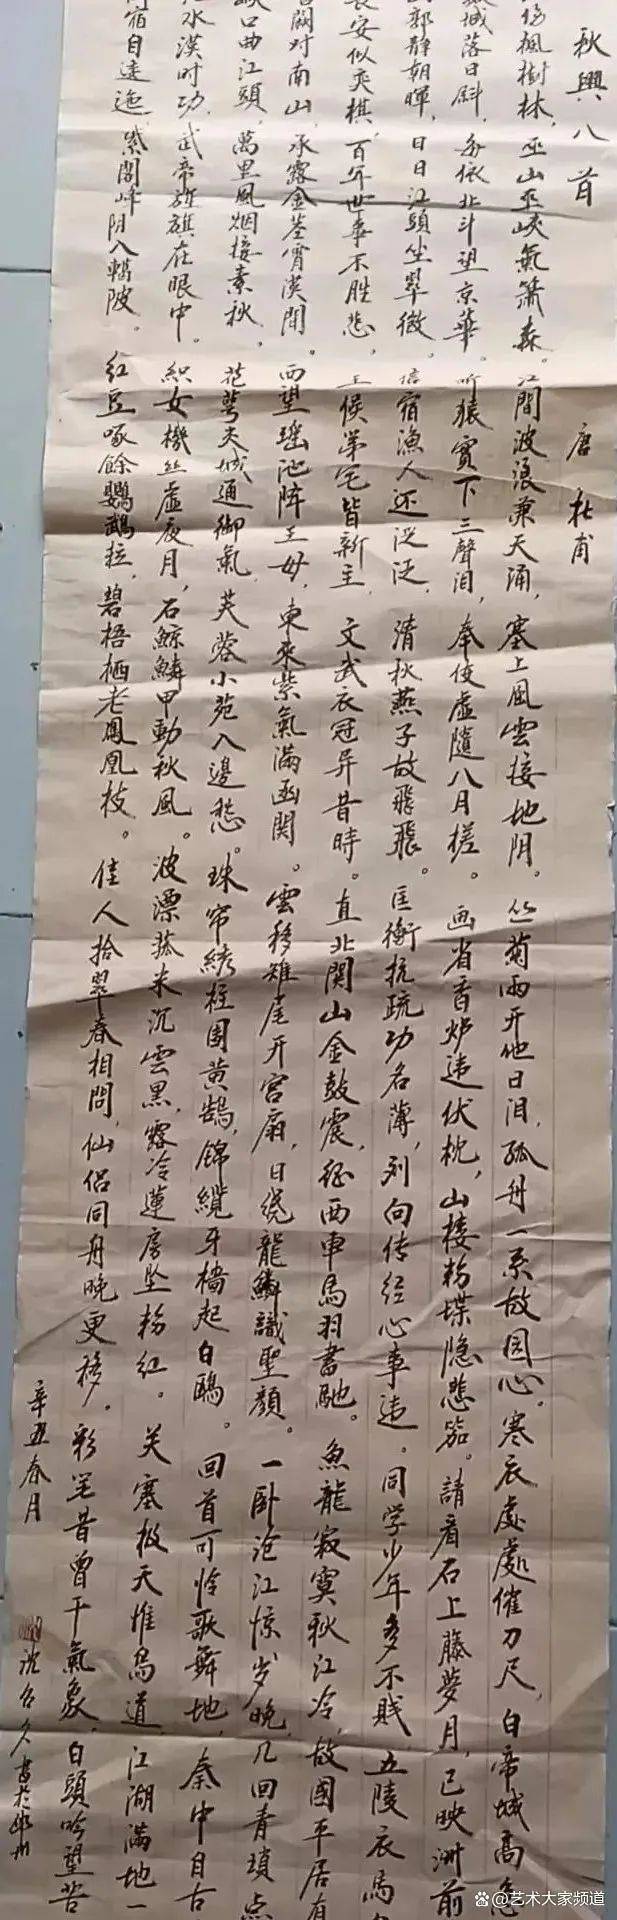 秋興八首
唐 杜甫
傷楓樹林，巫山巫峽氣箫森。江間波浪兼天涌，塞上風雲接地阴。丛菊兩开他日泪，孤舟一系故园心。寒衣處處催刀尺，白帝城高急
城落日斜，每依北斗望京華。听猿實下三聲泪，奉使虛隨八月槎。画省香炉违伏枕，山楼粉堞隐悲笳。請看石上藤萝月，已映洲前
郭靜朝暉，日日江頭坐翠微。信宿漁人还泛泛，清秋燕子故飛飛。匡衡抗疏功名薄，刘向传经心事违。同学少年多不贱，五陵衣馬
長安似奕棋，百年世事不胜悲，王侯第宅皆新主，文武衣冠异昔時。直北関山金鼓震，征西車馬羽書馳。魚龍寂寞秋江冷，故國平居有
闕对南山，承露金茎霄漢間。西望瑶池阵王母，東來紫氣滿函関。雲移雉尾开宫扇，日绕龍鱗識聖顏。一卧沧江惊岁晚，几回青琐点
峽口曲江頭，萬里風烟接素秋，花萼夫城通御氣，芙蓉小苑入邊愁。珠帘綉柱围黄鵠，锦纜牙檣起白鷗。回首可怜歌舞地，秦中自古
水漢时功，武帝旌旗在眼中。織女機丝虛夜月，石鯨鱗甲動秋風。波漂菰米沉雲黑，露冷蓮房坠粉红。关塞极天惟鸟道，江湖滿地一
宿自逶迤，紫閣峰阴入渼陂。红豆啄餘鸚鵡粒，碧梧栖老鳳凰枝。佳人拾翠春相問，仙侣同舟晚更移。彩笔昔曾干氣象，白頭吟望苦
辛丑春月
沈
@艺术大家频道